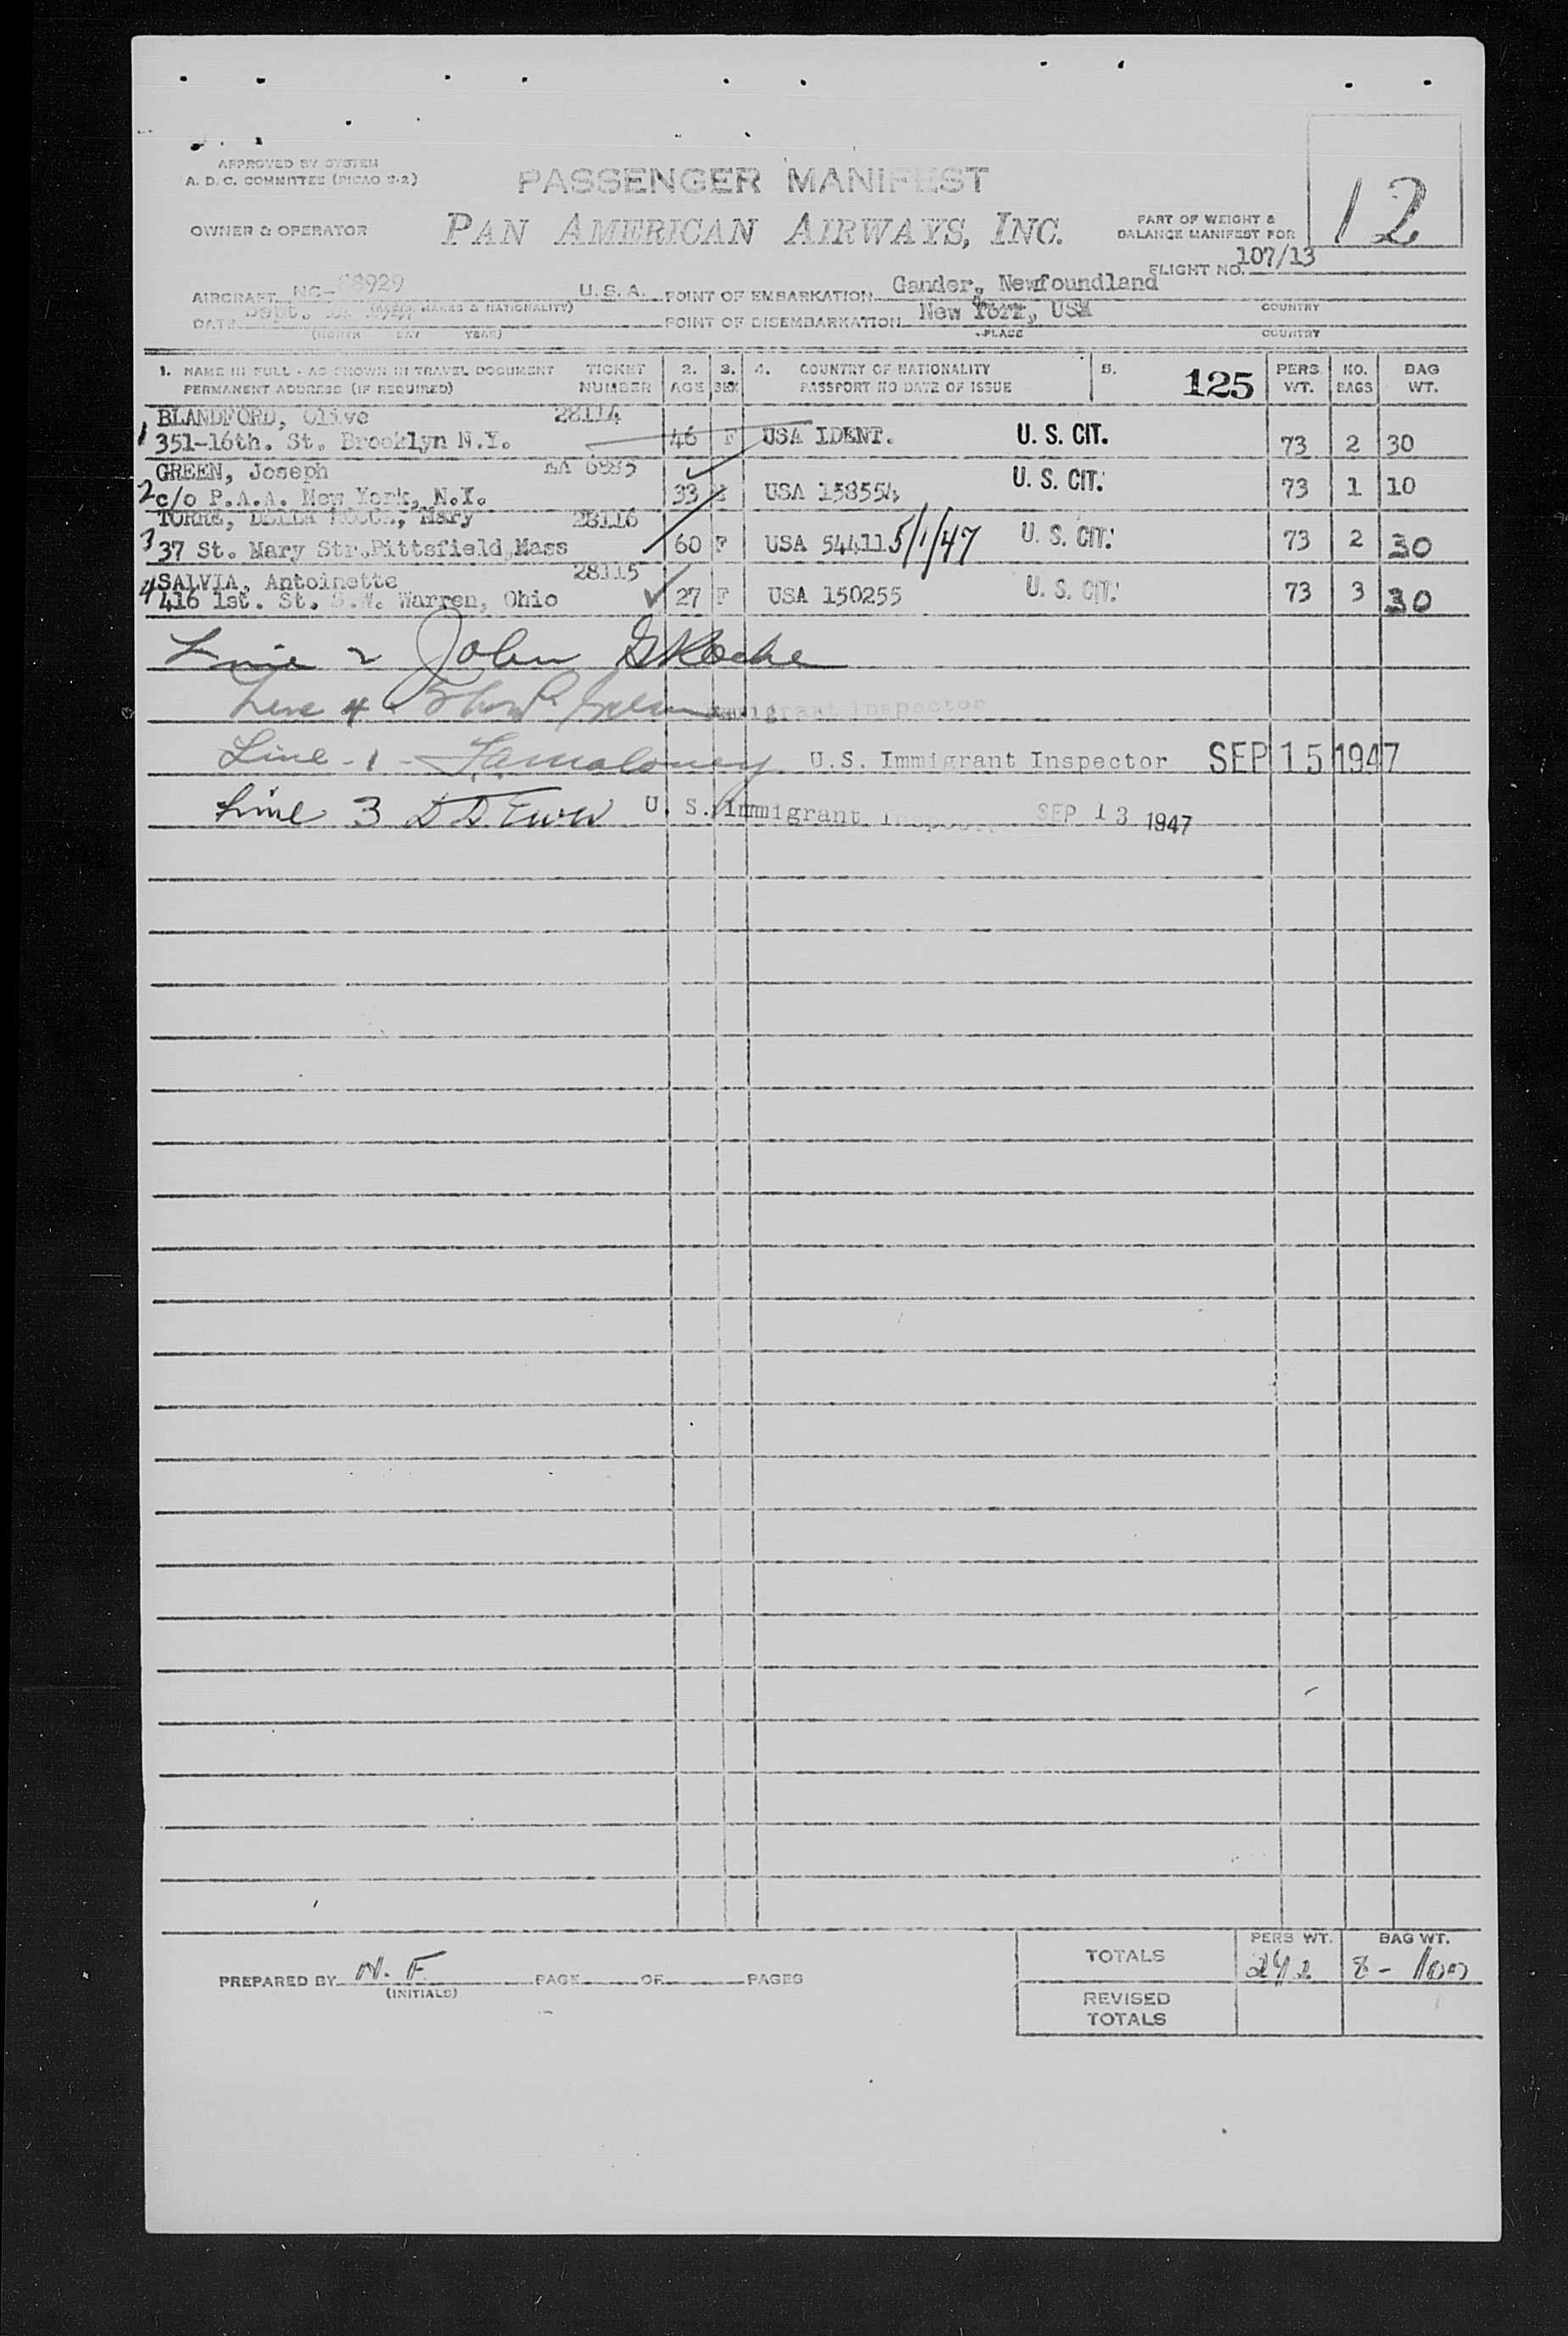 APPROVED BY SYSTEM
A. D. C. COMMITTEE (PICAO S-2)
PASSENGER MANIFEST
12
OWNER & OPERATOR
PAN AMERICAN AIRWAYS, INC.
PART OF WEIGHT &
BALANCE MANIFEST FOR
FLIGHT NO. 107/13
AIRCRAFT NC-88929 U.S.A. POINT OF EMBARKATION Gander, Newfoundland
(MARKS & NATIONALITY) COUNTRY
DATE Sept. 1947 POINT OF DISEMBARKATION New York, USA
(MONTH DAY YEAR) PLACE COUNTRY
1. NAME IN FULL - AS SHOWN IN TRAVEL DOCUMENT TICKET 2. 3. 4. COUNTRY OF NATIONALITY 5. 125 PERS. NO. BAG
PERMANENT ADDRESS (IF REQUIRED) NUMBER AGE SEX PASSPORT NO DATE OF ISSUE WT. BAGS WT.
BLANDFORD, Olive 28114
1 351-16th. St. Brooklyn N.Y. 46 F USA IDENT. U. S. CIT. 73 2 30
GREEN, Joseph
2 c/o P.A.A. New York, N.Y. 33 USA 158554 U. S. CIT. 73 1 10
TORRE, DELLA Mary 28116
3 37 St. Mary Str.,Pittsfield,Mass 60 F USA 54411 5/1/47 U. S. CIT. 73 2 30
4 SALVIA, Antoinette 28115
416 1st. St. S.W. Warren, Ohio 27 F USA 150255 U. S. CIT. 73 3 30
Line 2 John
Line 4 Immigrant Inspector
Line - 1 - U.S. Immigrant Inspector SEP 15 1947
Line 3 U. S. Immigrant Inspector SEP 13 1947
TOTALS PERS WT. BAG WT.
292 8 - 100
PREPARED BY N. F. PAGE OF PAGES
(INITIALS)
REVISED
TOTALS